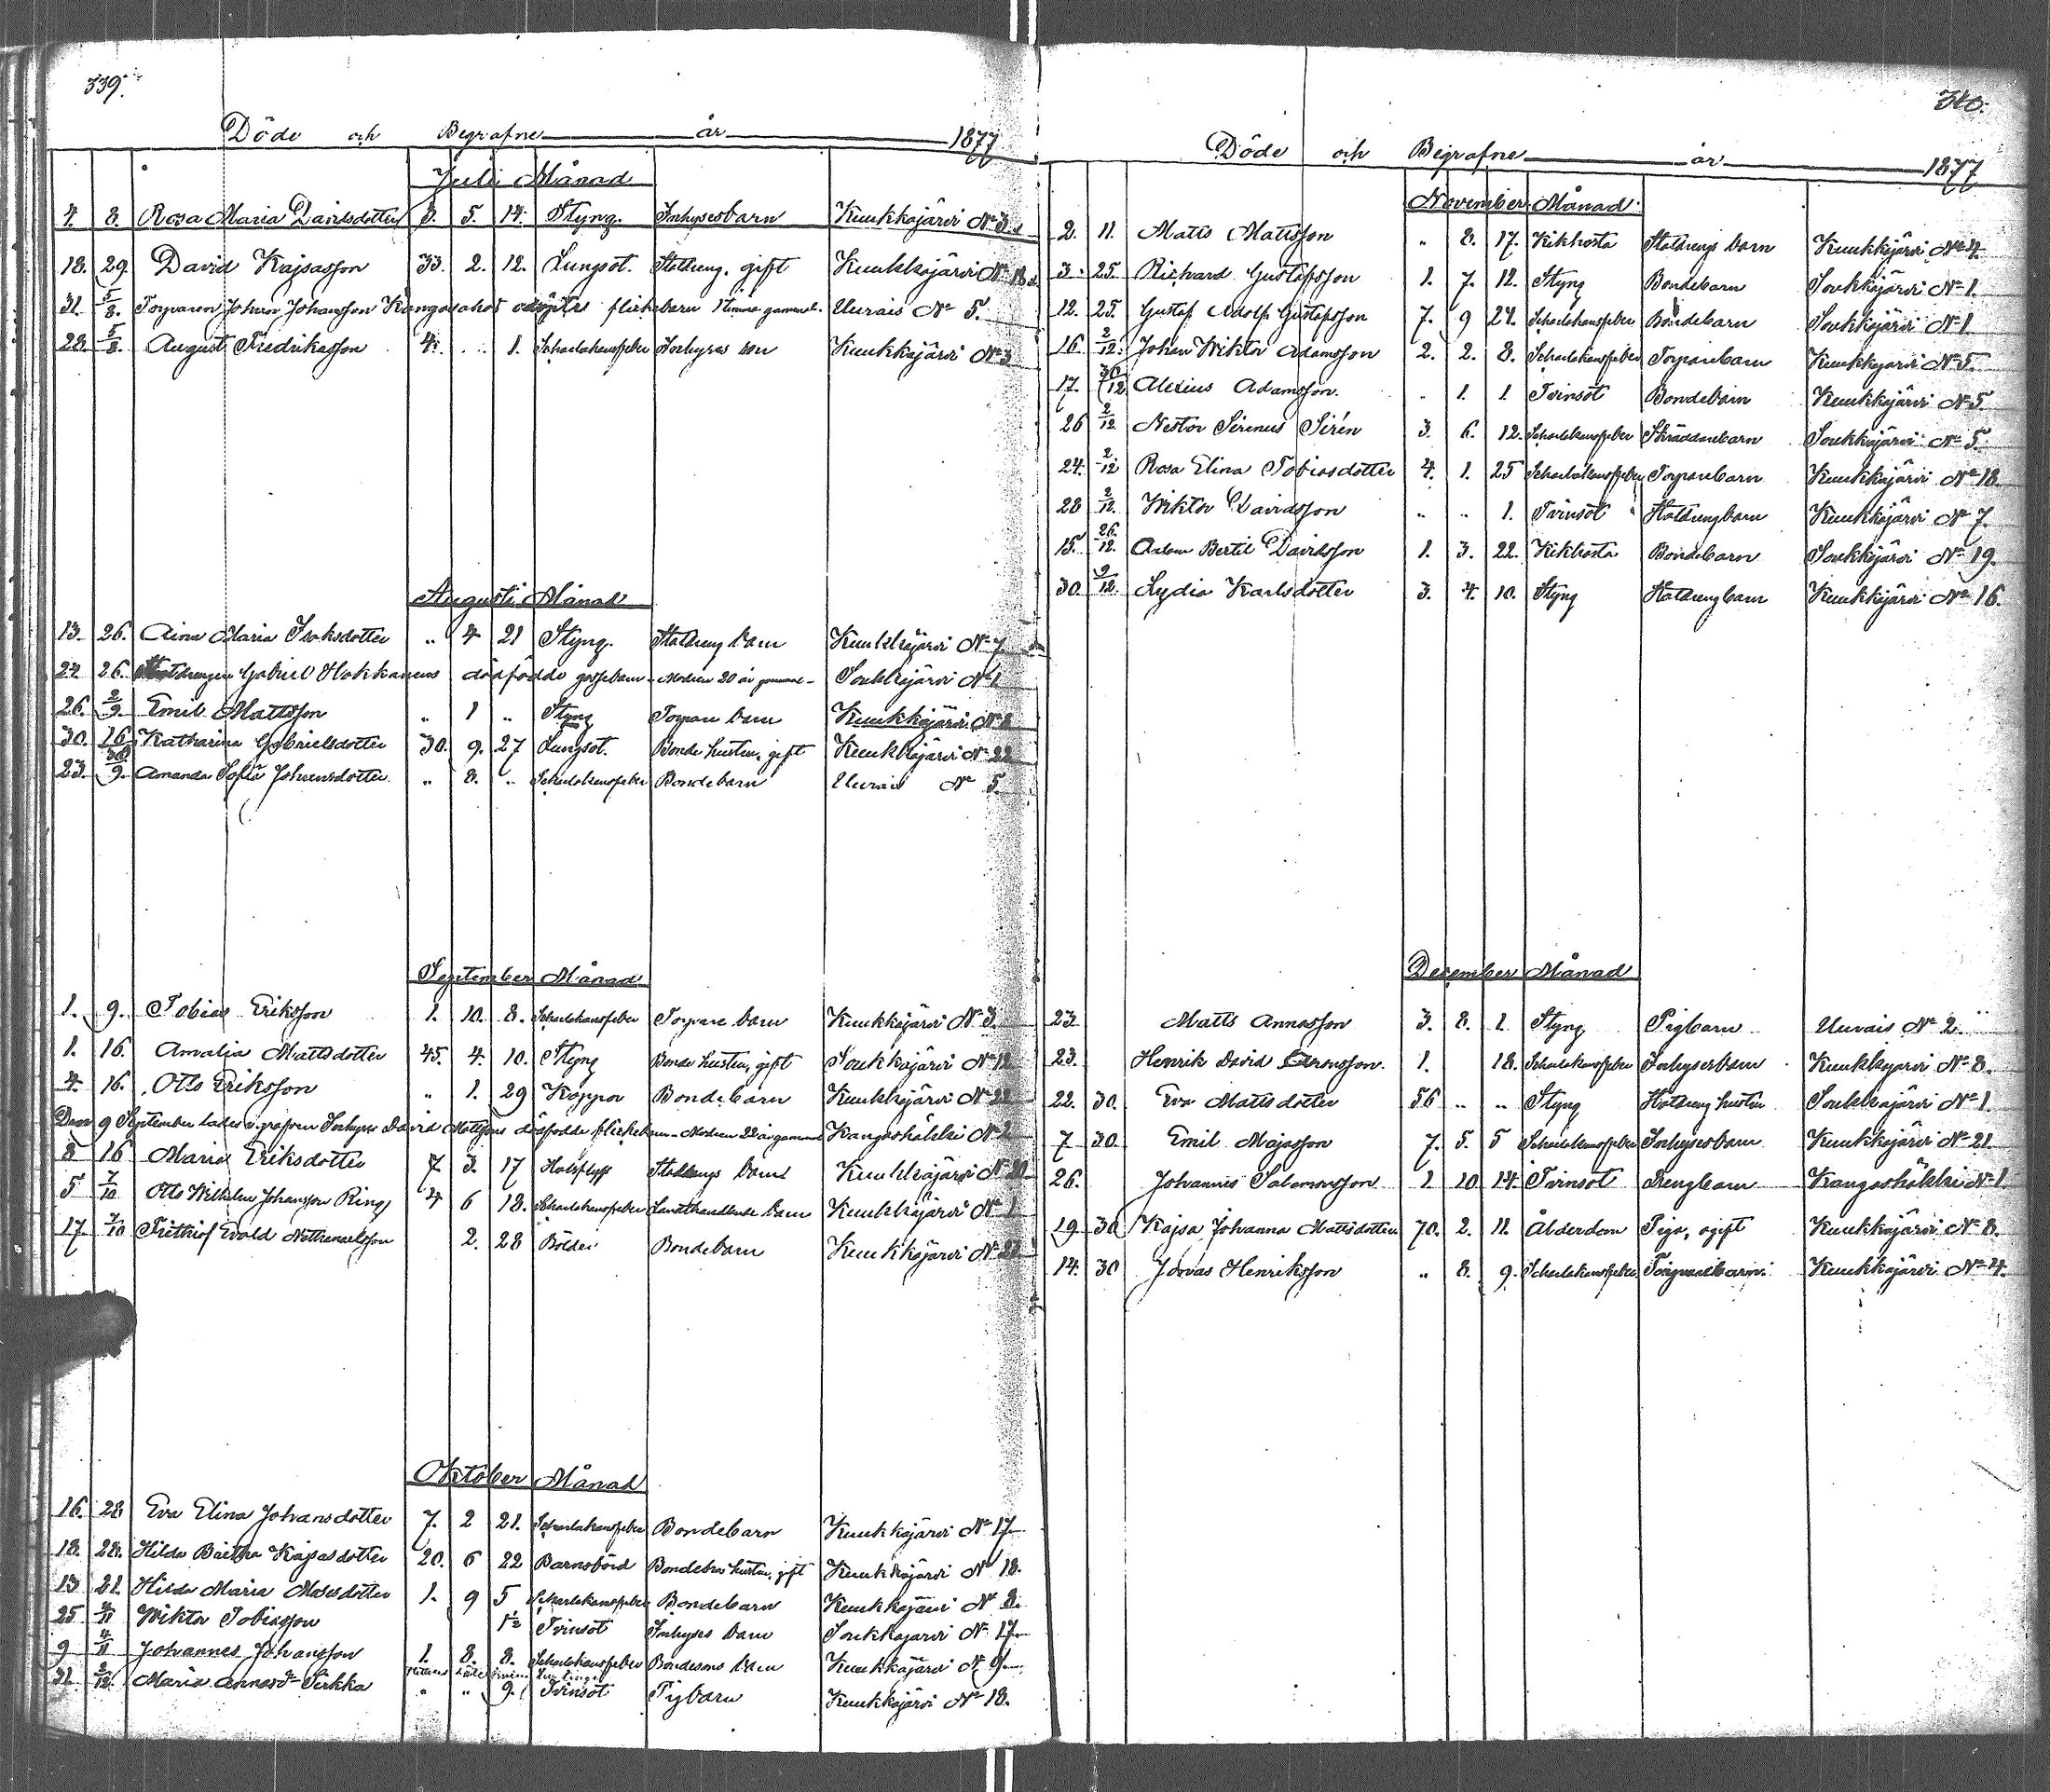 339.
Döde och Begrafne år 1877
Juli Månad
4. 8. Rosa Maria Davidsdotter 3. 5. 14. Styng. Inhysesbarn Kuukkajärvi № 3.
18. 29. David Kajsasson 33. 2. 12. Lungsot. Statdreng, gift Kuukkajärvi № 18.
31. 5/8. Torparen Johan Johansson Kangasahos flickebarn 1 timme gammal. Uurais № 5.
28. 5/8. August Fredriksson 4. .. 1. Scharlakansfeber Inhyses son Kuukkajärvi № 3
Augusti Månad
13. 26. Aina Maria Isaksdotter .. 4 21 Styng. Statdreng barn Kuukkajärvi № 7
24 26. Statdrengen Gabriel Hakkanens dödfödde gossebarn - Modren 20 år gammal - Soukkajärvi № 1
26. 2/9. Emil Mattsson .. 1 .. Styng Torpare barn Kuukkajärvi №
30. 16 Katharina Gabrielsdotter 30. 9. 27 Lungsot. Bonde hustru, gift Kuukkajärvi № 22
23. 30/9. Amanda Sofia Johansdotter .. 8. .. Scharlakansfeber Bondebarn Uurais № 5.
September Månad
1. 9. Tobias Eriksson 1. 10. 8. Scharlakansfeber Torpare barn Kuukkajärvi № 3.
1. 16. Amalia Mattsdotter 45. 4. 10. Styng Bonde hustru, gift Soukkajärvi № 12
4. 16. Otto Eriksson .. 1. 29 Koppor Bondebarn Kuukkajärvi № 22
Den 9 September lades i grafven Inhyses David Mattssons dödfödde flickebarn - Modren 22 år gammal Kangashäkki № 2
8 16 Maria Eriksdotter 7 3. 17 Halsfluss Statdrengs barn Kuukkajärvi № 20
5 7/10 Otto Wilhelm Johansson Ring 4 6 18. Scharlakansfeber Landthandlande barn Kuukkajärvi № 1
17. 7/10 Frithiof Evald Nathanaelsson 2. 28 Bölder Bondebarn Kuukkajärvi № 22
Oktober Månad
16. 28 Eva Elina Johansdotter 7. 2 21. Scharlakansfeber Bondebarn Kuukkajärvi № 17.
18. 28. Hilda Bertha Kajsasdotter 20. 6 22 Barnsbörd Bondehustru, gift Kuukkajärvi № 18.
13 21. Hilda Maria Mosesdotter 1. 9 5 Scharlakansfeber Bondebarn Kuukkajärvi № 8.
25 4/11 Wiktor Tobiasson 1½ Tvinsot Inhyses barn Soukkajärvi № 17.
9 4/11 Johannes Johansson 1. 8. 8. Scharlakansfeber Bondesons barn Kuukkajärvi № 9.
31. 2/12. Maria Annasdr Sirkka .. .. 9. Tvinsot Pigbarn Kuukkajärvi № 18.
340.
Döde och Begrafne år 1877
November Månad
2. 11. Matts Mattsson .. 8. 17. Kikhosta Statdrengs barn Kuukkajärvi № 4.
3. 25. Richard Gustafsson 1. 7. 12. Styng Bondebarn Soukkajärvi № 1.
12. 25. Gustaf Adolf Gustafsson 7. 9 24. Scharlakansfeber Bondebarn Soukkajärvi № 1
16. 2/12. Johan Wiktor Adamsson 2. 2. 8. Scharlakansfeber Torparebarn Kuukkajärvi № 5.
17. 30/12 Alexius Adamsson. .. 1. 1. Tvinsot Bondebarn Kuukkajärvi № 5.
26 2/12. Nestor Sirenus Sirén 3. 6. 12. Scharlakansfeber Skräddarebarn Soukkajärvi № 5.
24. 2/12 Rosa Elina Tobiasdotter 4. 1. 25 Scharlakansfeber Torparebarn Kuukkajärvi № 18.
28 2/12. Wiktor Davidsson .. .. 1. Tvinsot Statdrengbarn Kuukkajärvi № 7.
15. 26/12. Adam Bertil Davidsson 1. 3. 22. Kikhosta Bondebarn Soukkajärvi № 19.
30. 9/12. Lydia Karlsdotter 3. 4. 10. Styng Statdrengbarn Kuukkajärvi № 16.
December Månad
23. Matts Annasson 3. 8. 1. Styng Pigbarn Uurais № 2.
23. Henrik David Aronsson. 1. 18. Scharlakansfeber Inhysesbarn Kuukkajärvi № 8.
22. 30. Eva Mattsdotter 56 .. .. Styng Statdreng hustru Soukkajärvi № 1.
7 30. Emil Majasson 7. 5. 5 Scharlakansfeber Inhysesbarn Kuukkajärvi № 21.
26. Johannes Salomonsson 1 10 14. Tvinsot Drengbarn Kangashäkki № 1.
19. 30. Kajsa Johanna Mattsdotter 70. 2. 11. Ålderdom Piga, ogift Kuukkajärvi № 8.
14. 30 Joonas Henriksson .. 8. 9. Scharlakansfeber Torparebarn Kuukkajärvi № 4.